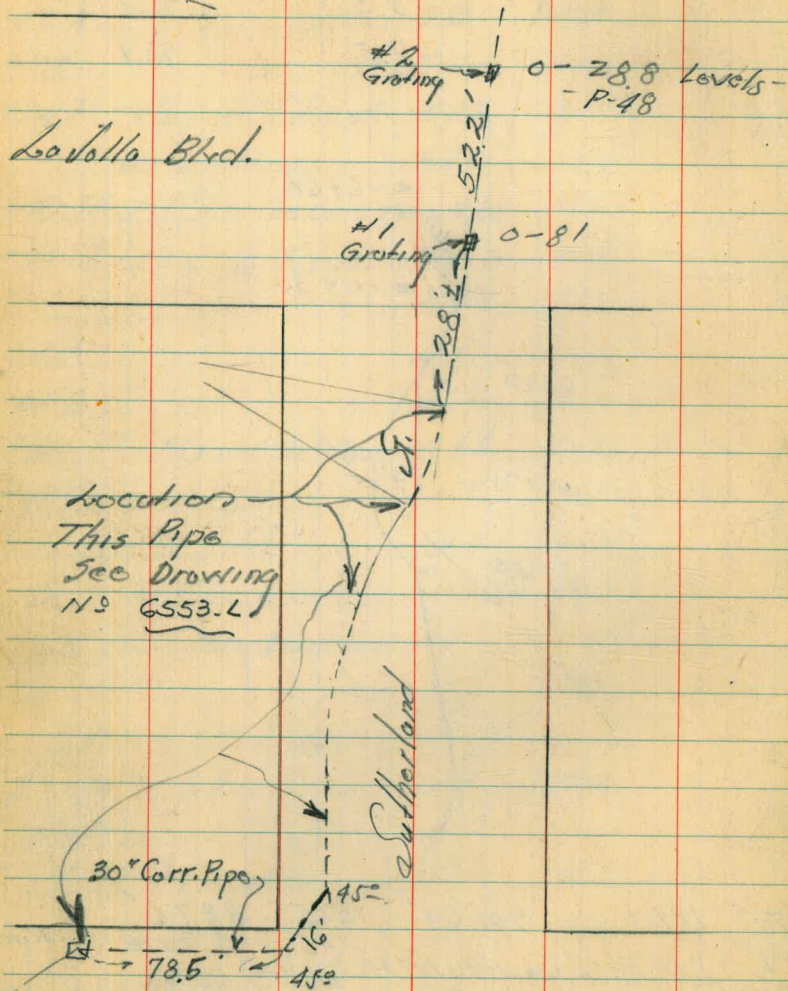 #2
Grating
0 - 28.8 Levels -
- P-48
52.2'
LaJolla Blvd.
#1
Grating
0-81
St.
Location
This Pipe
See Drawing
Nº 6553-L
Sutherland
30" Corr. Pipe
45º
16'
78.5'
45º